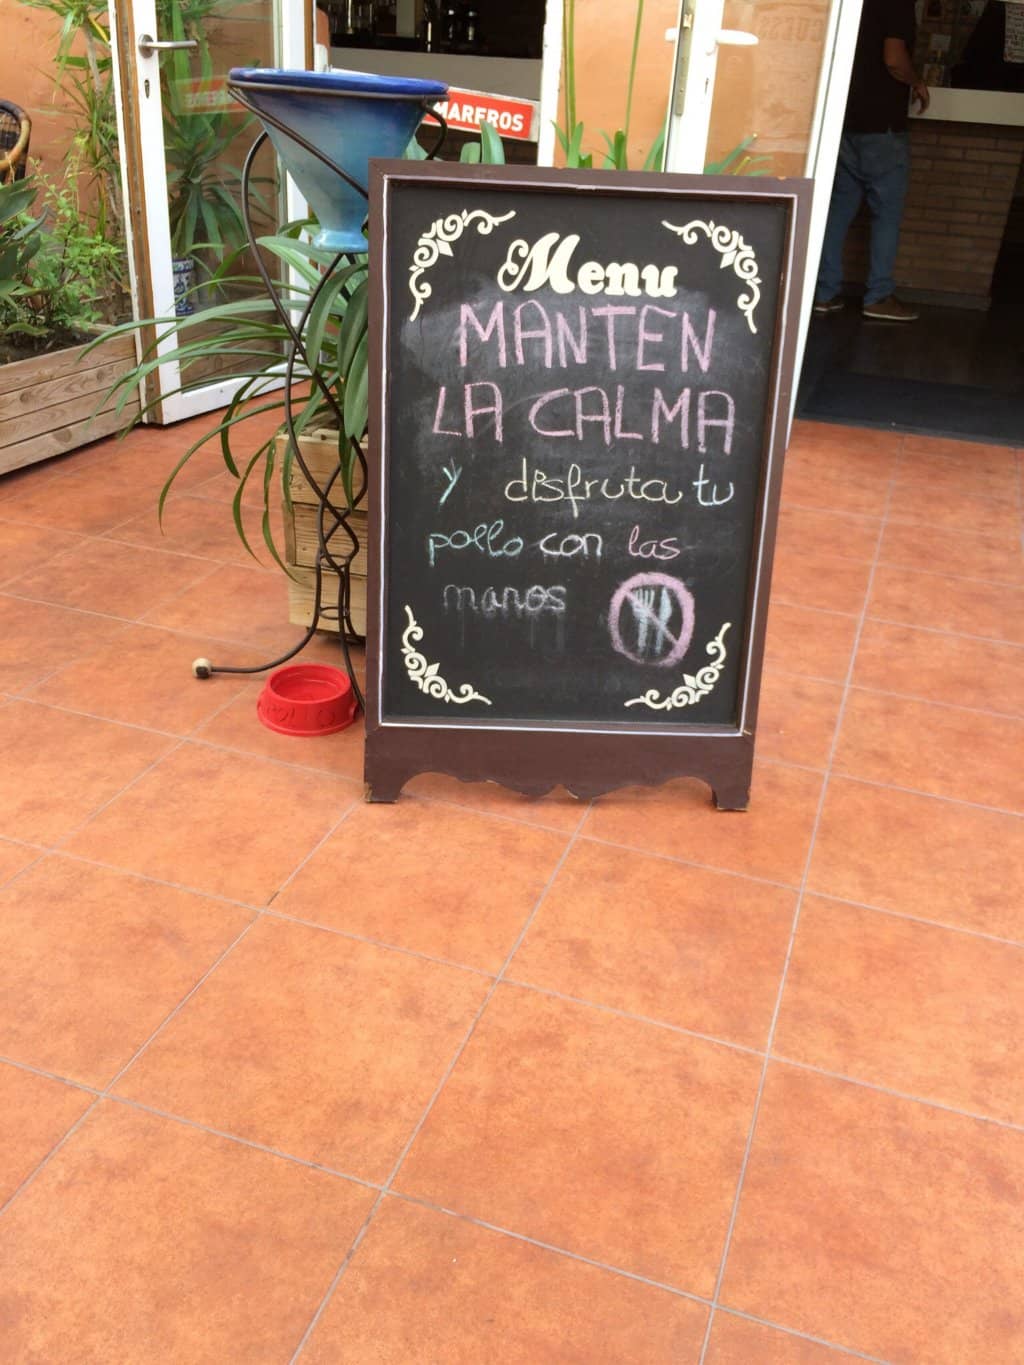 MARFROS
Menu
MANTEN
LA CALMA
y disfruta tu
pollo con las
manos